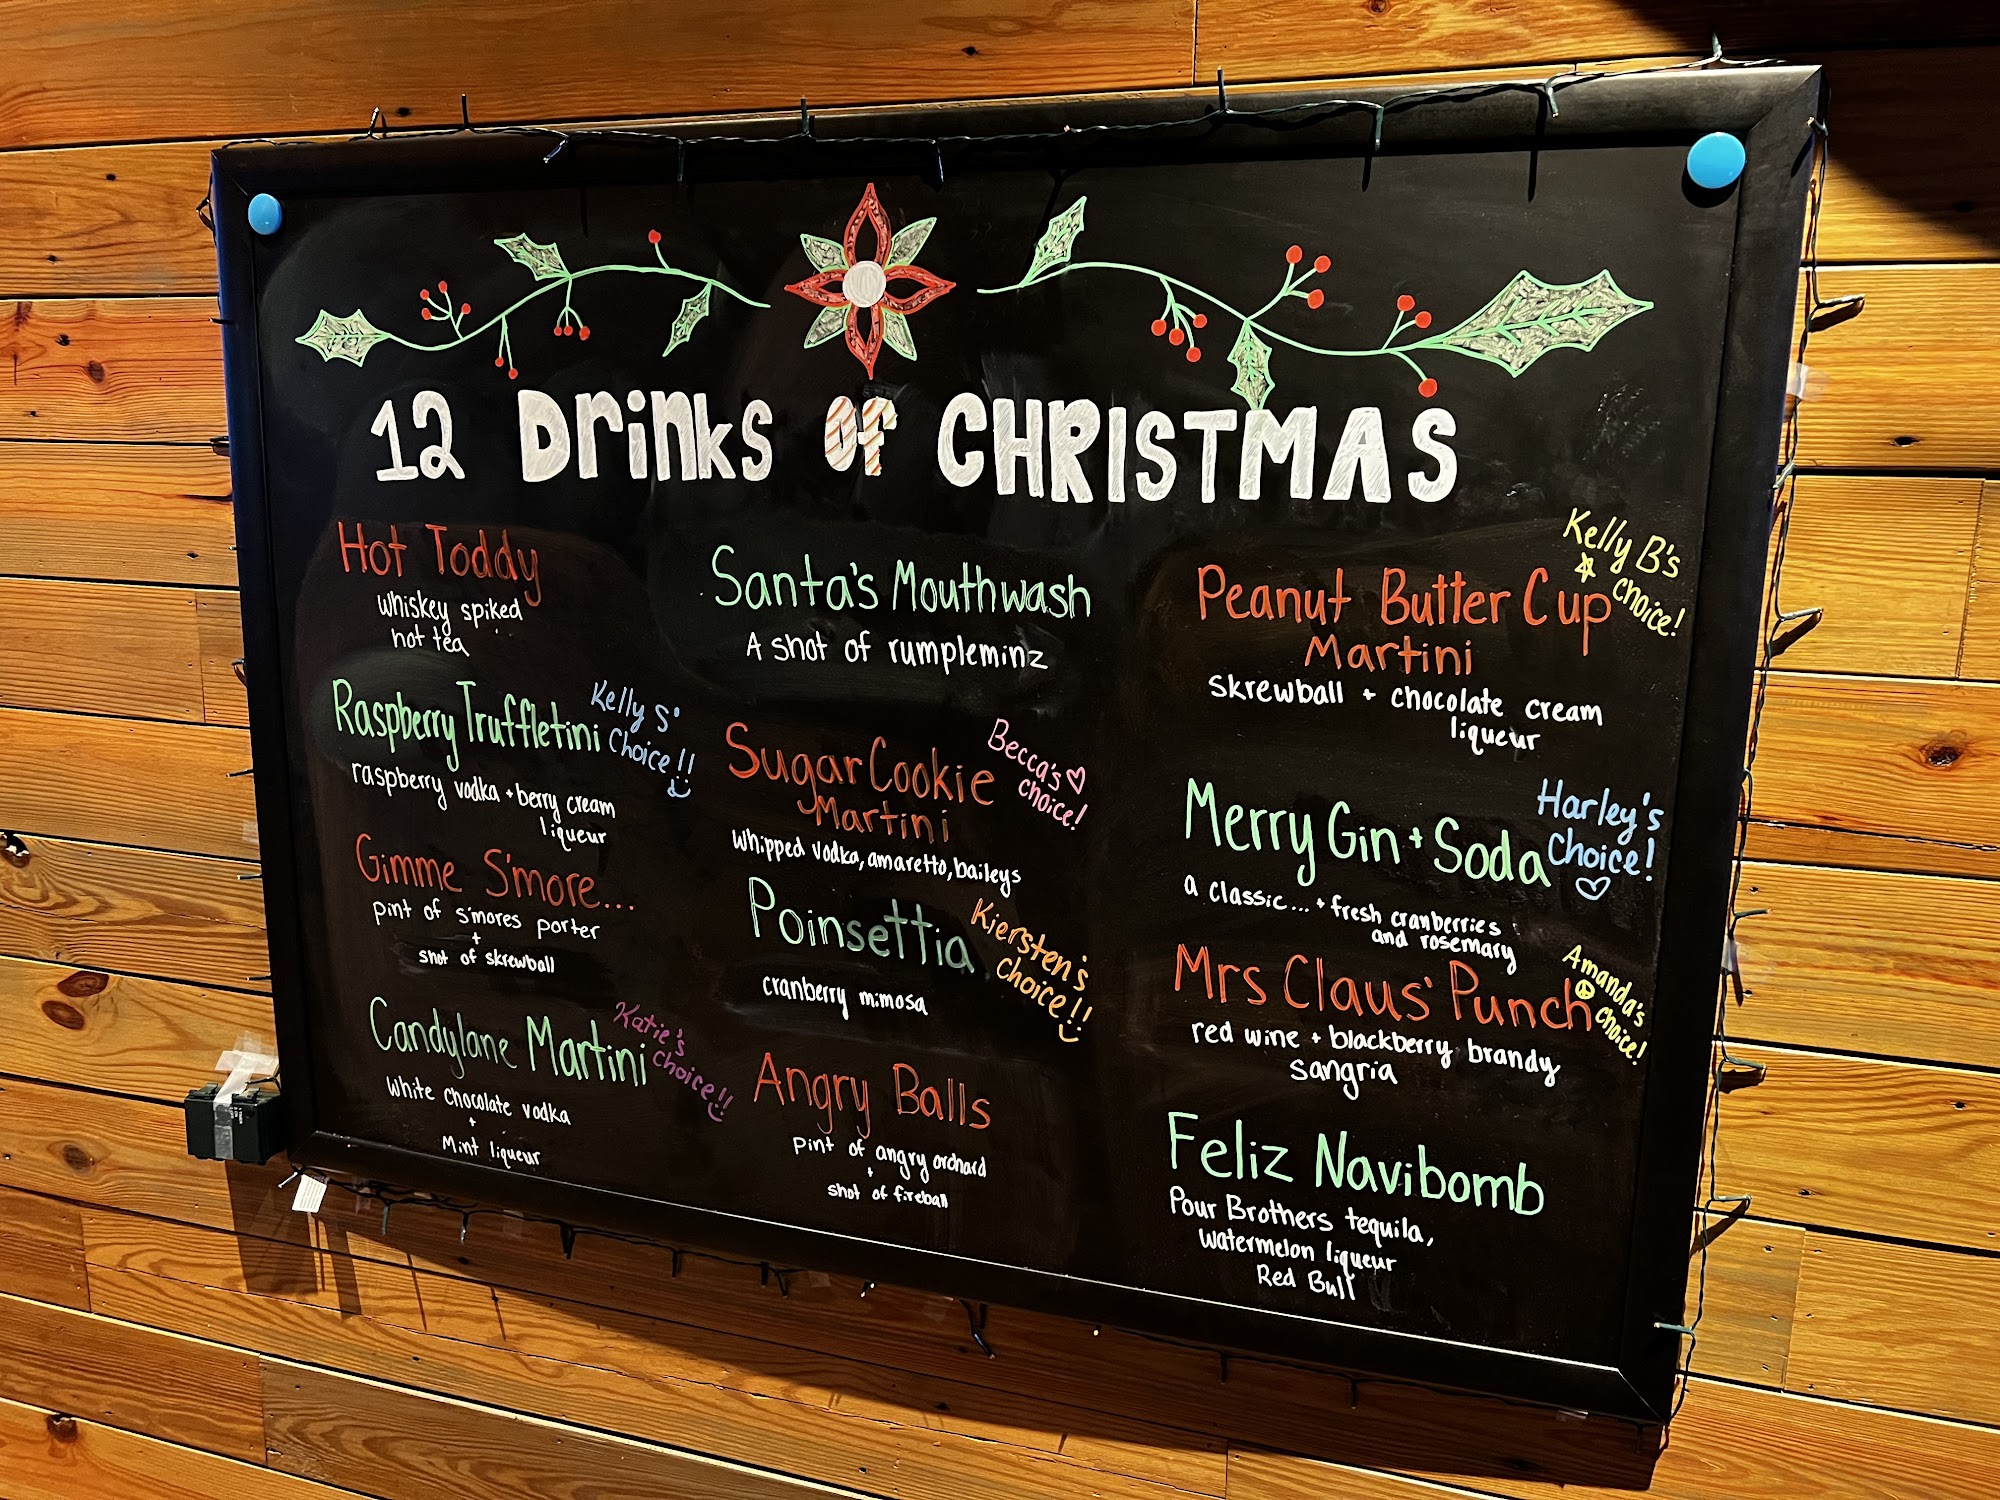 12 Drinks of CHRISTMAS
Hot Toddy
whiskey spiked
hot tea
Raspberry Truffletini
Kelly S'
Choice!!
raspberry vodka + berry cream
liqueur
Gimme S'more...
pint of s'mores porter
+
shot of skrewball
Candylane Martini
Katie's
Choice!!
White chocolate vodka
+
Mint liqueur
Santa's Mouthwash
A shot of rumpleminz
Sugar Cookie
Martini
Becca's
choice!
Whipped vodka, amaretto, baileys
Poinsettia
Kiersten's
choice!!
cranberry mimosa
Angry Balls
pint of angry orchard
+
shot of fireball
Peanut Butter Cup
Martini
Kelly B's
choice!
Skrewball + chocolate cream
liqueur
Merry Gin + Soda
Harley's
Choice!
a classic... + fresh cranberries
and rosemary
Mrs Claus' Punch
Amanda's
choice!
red wine + blackberry brandy
sangria
Feliz Navibomb
Pour Brothers tequila,
watermelon liqueur
Red Bull